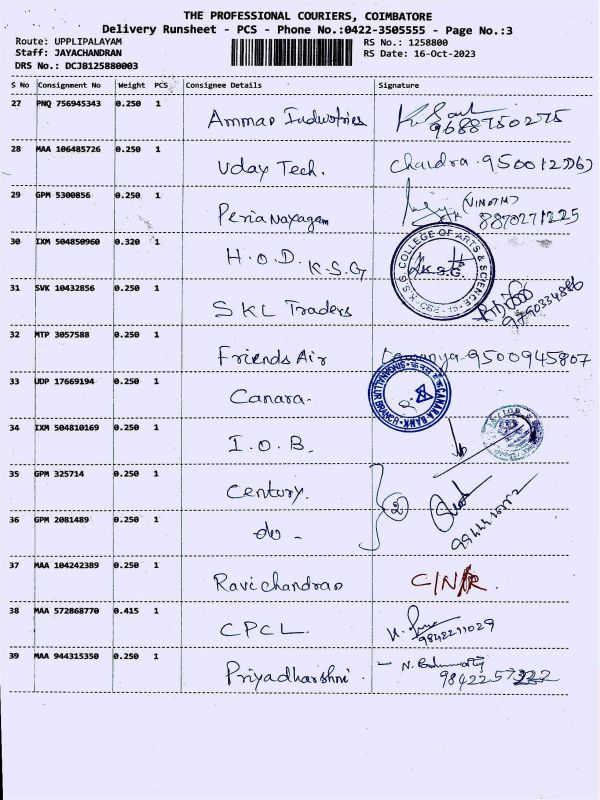 THE PROFESSIONAL COURIERS, COIMBATORE
Delivery Runsheet - PCS - Phone No.:0422-3505555 - Page No.:3
Route: UPPLIPALAYAM RS No.: 1258800
Staff: JAYACHANDRAN RS Date: 16-Oct-2023
DRS No.: DCJB125880003
S No Consignment No Weight PCS Consignee Details Signature
27 PNQ 756945343 0.250 1 Ammar Industries 9688750275
28 MAA 106485726 0.250 1 Uday Tech. Chandra
29 GPM 5300856 0.250 1 Peria Nayagam (VINOTH) 8870271225
30 IXM 504850960 0.320 1 H.O.D. K.S.G K.S.G. COLLEGE OF ARTS & SCIENCE CBE-15 K.S.G.
31 SVK 10432856 0.250 1 SKL Traders
32 MTP 3057588 0.250 1 Friends Air 9500945807
33 UDP 17669194 0.250 1 Canara. CANARA BANK SINGANALLUR BRANCH
34 IXM 504810169 0.250 1 I.O.B.
35 GPM 325714 0.250 1 Century. 2
36 GPM 2081489 0.250 1 do -
37 MAA 104242389 0.250 1 Ravichandran C/N/R.
38 MAA 572868770 0.415 1 CPCL. 9842211029
39 MAA 944315350 0.250 1 Priyadharshni.